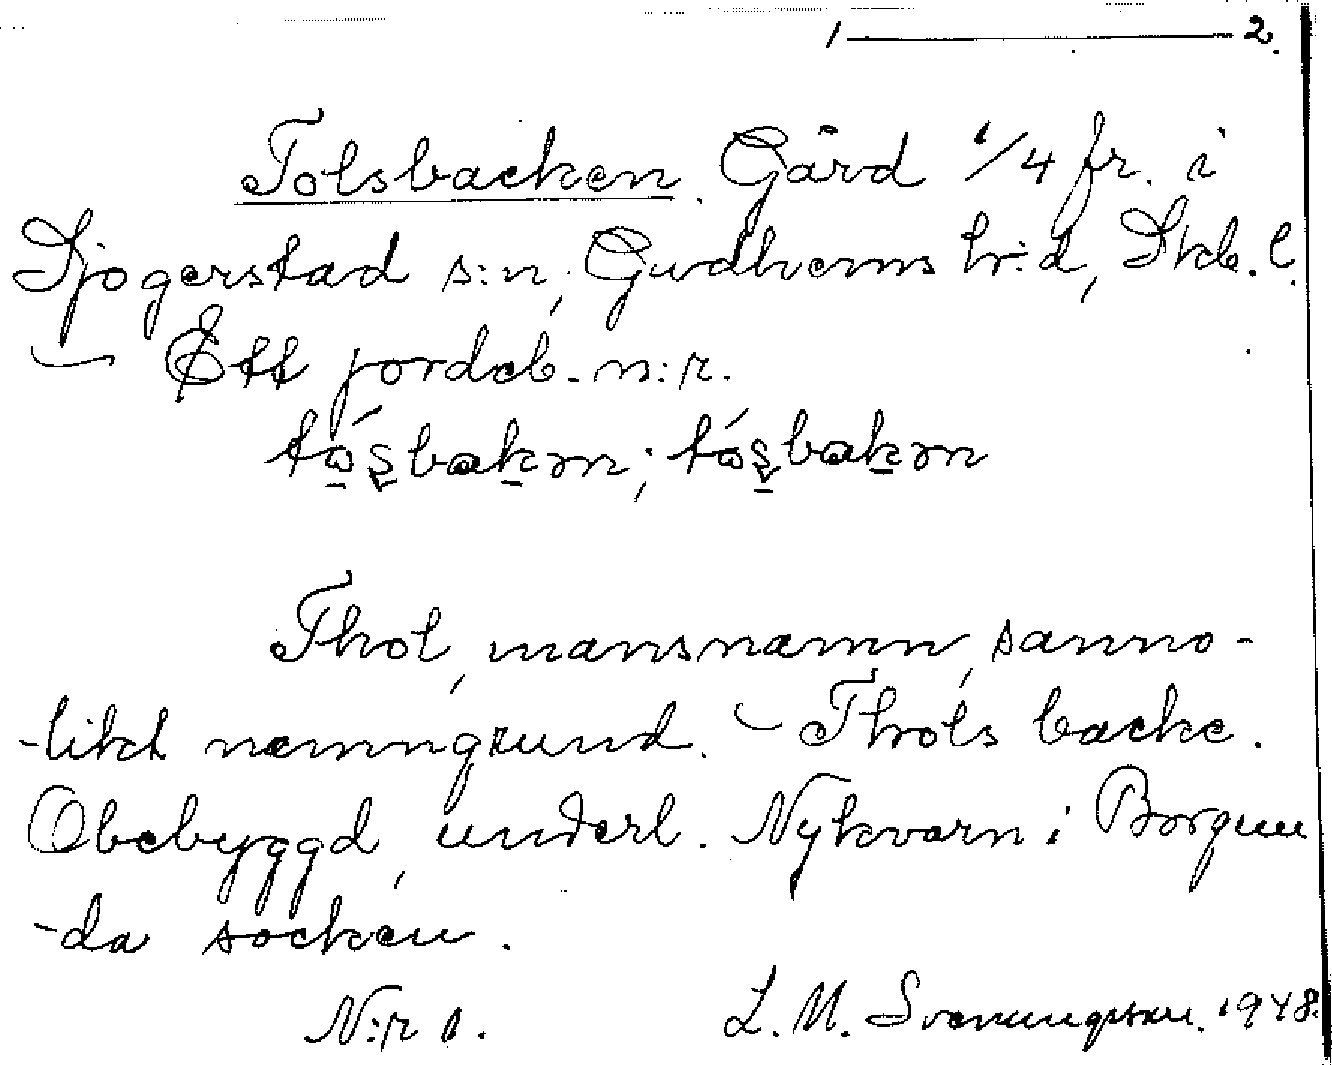 1 — 2.
Tolsbacken. Gård 1/4 fr. i
Sjogerstad s:n, Gudhems hr:d, Skb. l.
— Ett jordeb. n:r.
tósbakən; tósbakən
Thol, mansnamn, sanno-
-likt namngrund. — Thols backe.
Obebyggd, underl. Nykvarn i Borgun
-da socken.
N:r 1.
L. M. Svenungsson. 1948.